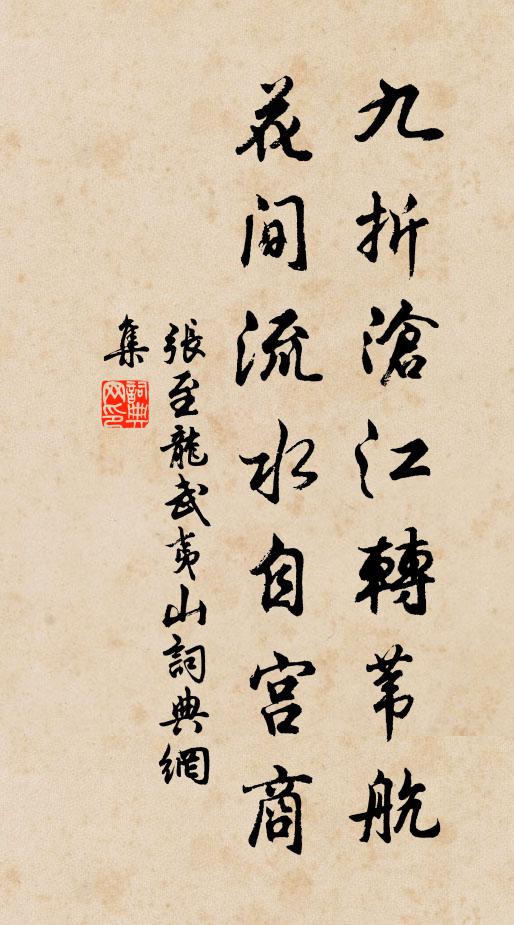 九折滄江轉葦航
花间流水自宫商
張至龍武夷山詞典網
集
詞典网印